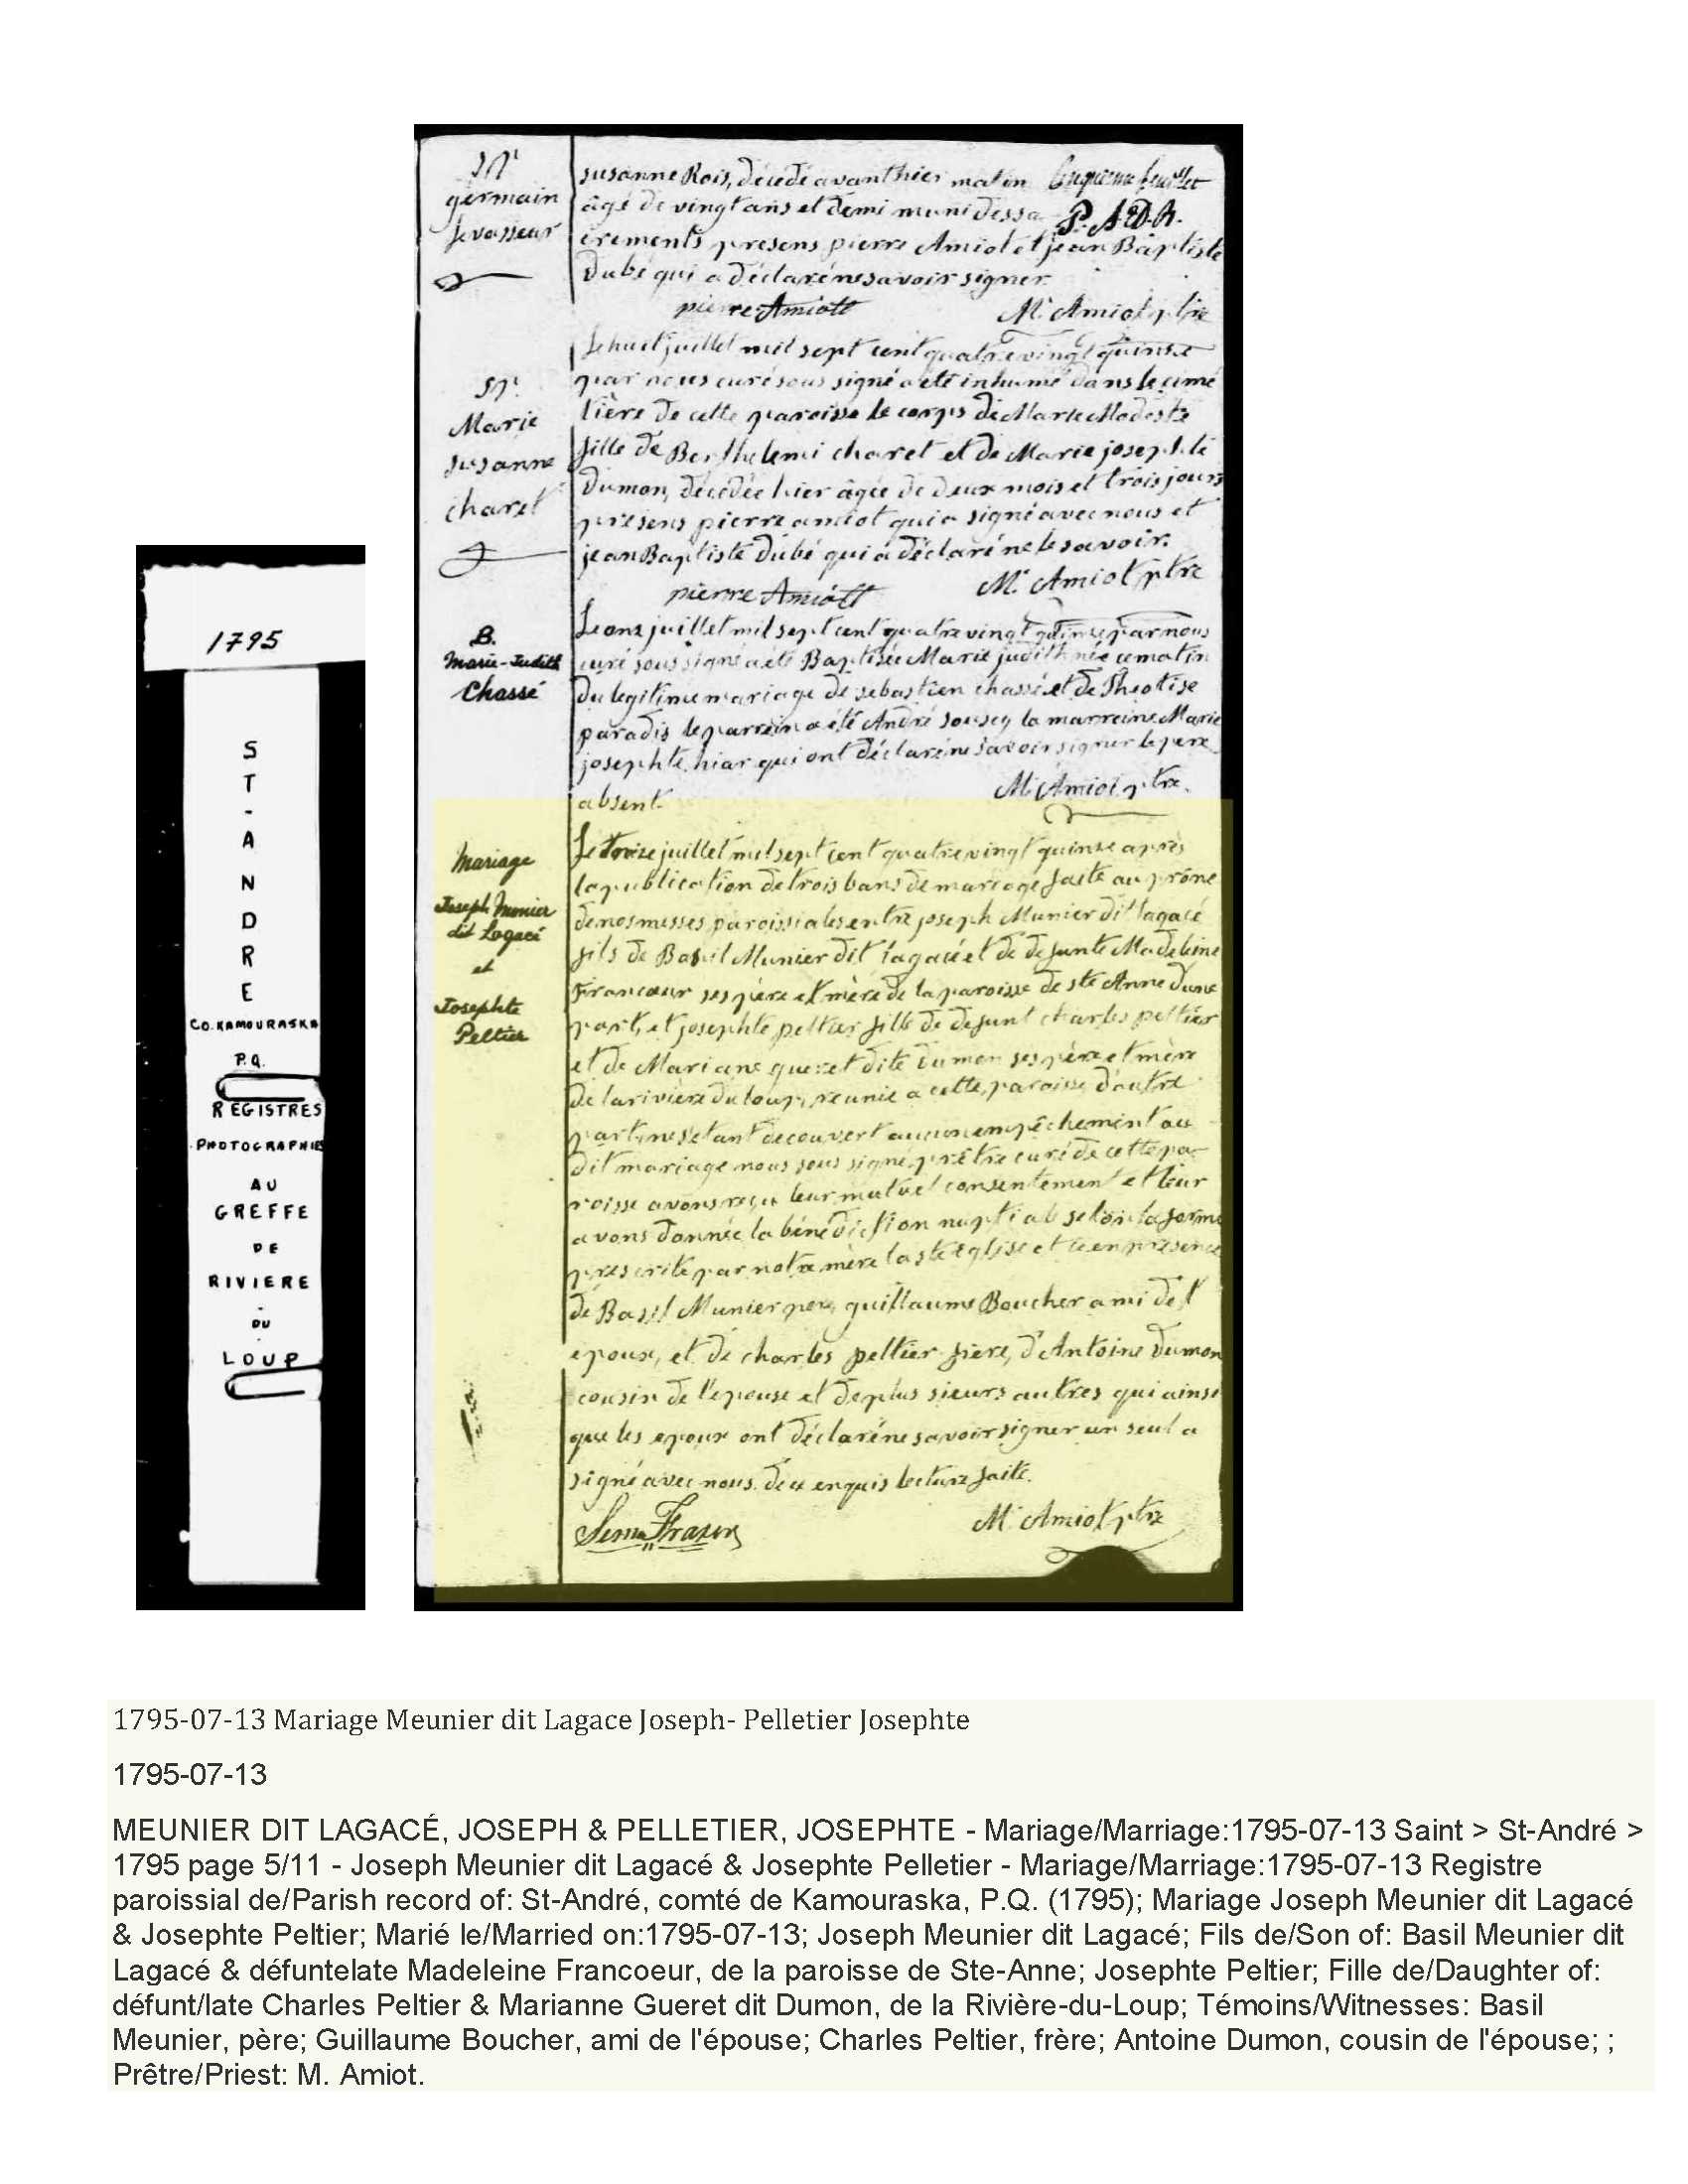 1795
ST-ANDRE
CO. KAMOURASKA
P.Q.
REGISTRES
PHOTOGRAPHIÉS
AU
GREFFE
DE
RIVIERE
-
DU
LOUP
Sr
germain
levasseur
susanne Rois, décédé avant hier matin
feuillet
âgé de vingt ans et demi muni des sa
P. A.D.R.
crements presens pierre Amiot et jean Baptiste
Dubé qui a déclaré ne savoir signer
pierre Amiott M. Amiot ptre
Sr.
Marie
susanne
charet
Le huit juillet mil sept cent quatre vingt quinse
par nous curé sous signé a été inhumé dans le cime
tière de cette paroisse le corps de Marie Modeste
fille de Berthelemi charet et de Marie josephte
Dumon, décédée hier âgée de deux mois et trois jours
presens pierre amiot qui a signé avec nous et
jean Baptiste dubé qui a déclaré ne le savoir.
pierre Amiott M. Amiot ptre
B.
Marie-Judith
Chassé
Le onze juillet mil sept cent quatre vingt quinse par nous
curé sous signé a été Baptisée Marie judith née ce matin
du legitime mariage de sebastien chassé et de Theotise
paradis le parrein a été André soucy la marreine Marie
josephte hiar qui ont déclaré ne savoir signer le pere
absent. M. Amiot ptre.
Mariage
Joseph Munier
dit Lagacé
et
Josephte
Peltier
Le treize juillet mil sept cent quatre vingt quinse après
la publication de trois bans de mariage faite au prône
de nos messes paroissiales entre joseph Munier dit lagacé
fils de Basil Munier dit lagacé et de defunte Madeleine
Francœur ses père et mère de la paroisse de ste Anne d'une
part, et josephte peltier fille de defunt charles peltier
et de Mariane queret dite dumon ses père et mère
de la rivière du loup, reunie a cette paroisse d'autre
part, ne s'etant decouvert aucun empêchement au
dit mariage nous sous signé prêtre curé de cette pa-
roisse avons reçu leur mutuel consentement et leur
avons donnée la bénédiction nuptiale selon la forme
prescrite par notre mère la ste Eglise et ce en presence
de Basil Munier pere, guillaume Boucher ami de l'
epoux, et de charles peltier frère, d'Antoine Dumon
cousin de l'epouse et de plus sieurs autres qui ainsi
que les epoux ont déclaré ne savoir signer un seul a
signé avec nous. de ce enquis lecture faite.
Frazer M. Amiot ptre
1795-07-13 Mariage Meunier dit Lagace Joseph- Pelletier Josephte
1795-07-13
MEUNIER DIT LAGACÉ, JOSEPH & PELLETIER, JOSEPHTE - Mariage/Marriage:1795-07-13 Saint > St-André >
1795 page 5/11 - Joseph Meunier dit Lagacé & Josephte Pelletier - Mariage/Marriage:1795-07-13 Registre
paroissial de/Parish record of: St-André, comté de Kamouraska, P.Q. (1795); Mariage Joseph Meunier dit Lagacé
& Josephte Peltier; Marié le/Married on:1795-07-13; Joseph Meunier dit Lagacé; Fils de/Son of: Basil Meunier dit
Lagacé & défuntelate Madeleine Francoeur, de la paroisse de Ste-Anne; Josephte Peltier; Fille de/Daughter of:
défunt/late Charles Peltier & Marianne Gueret dit Dumon, de la Rivière-du-Loup; Témoins/Witnesses: Basil
Meunier, père; Guillaume Boucher, ami de l'épouse; Charles Peltier, frère; Antoine Dumon, cousin de l'épouse; ;
Prêtre/Priest: M. Amiot.